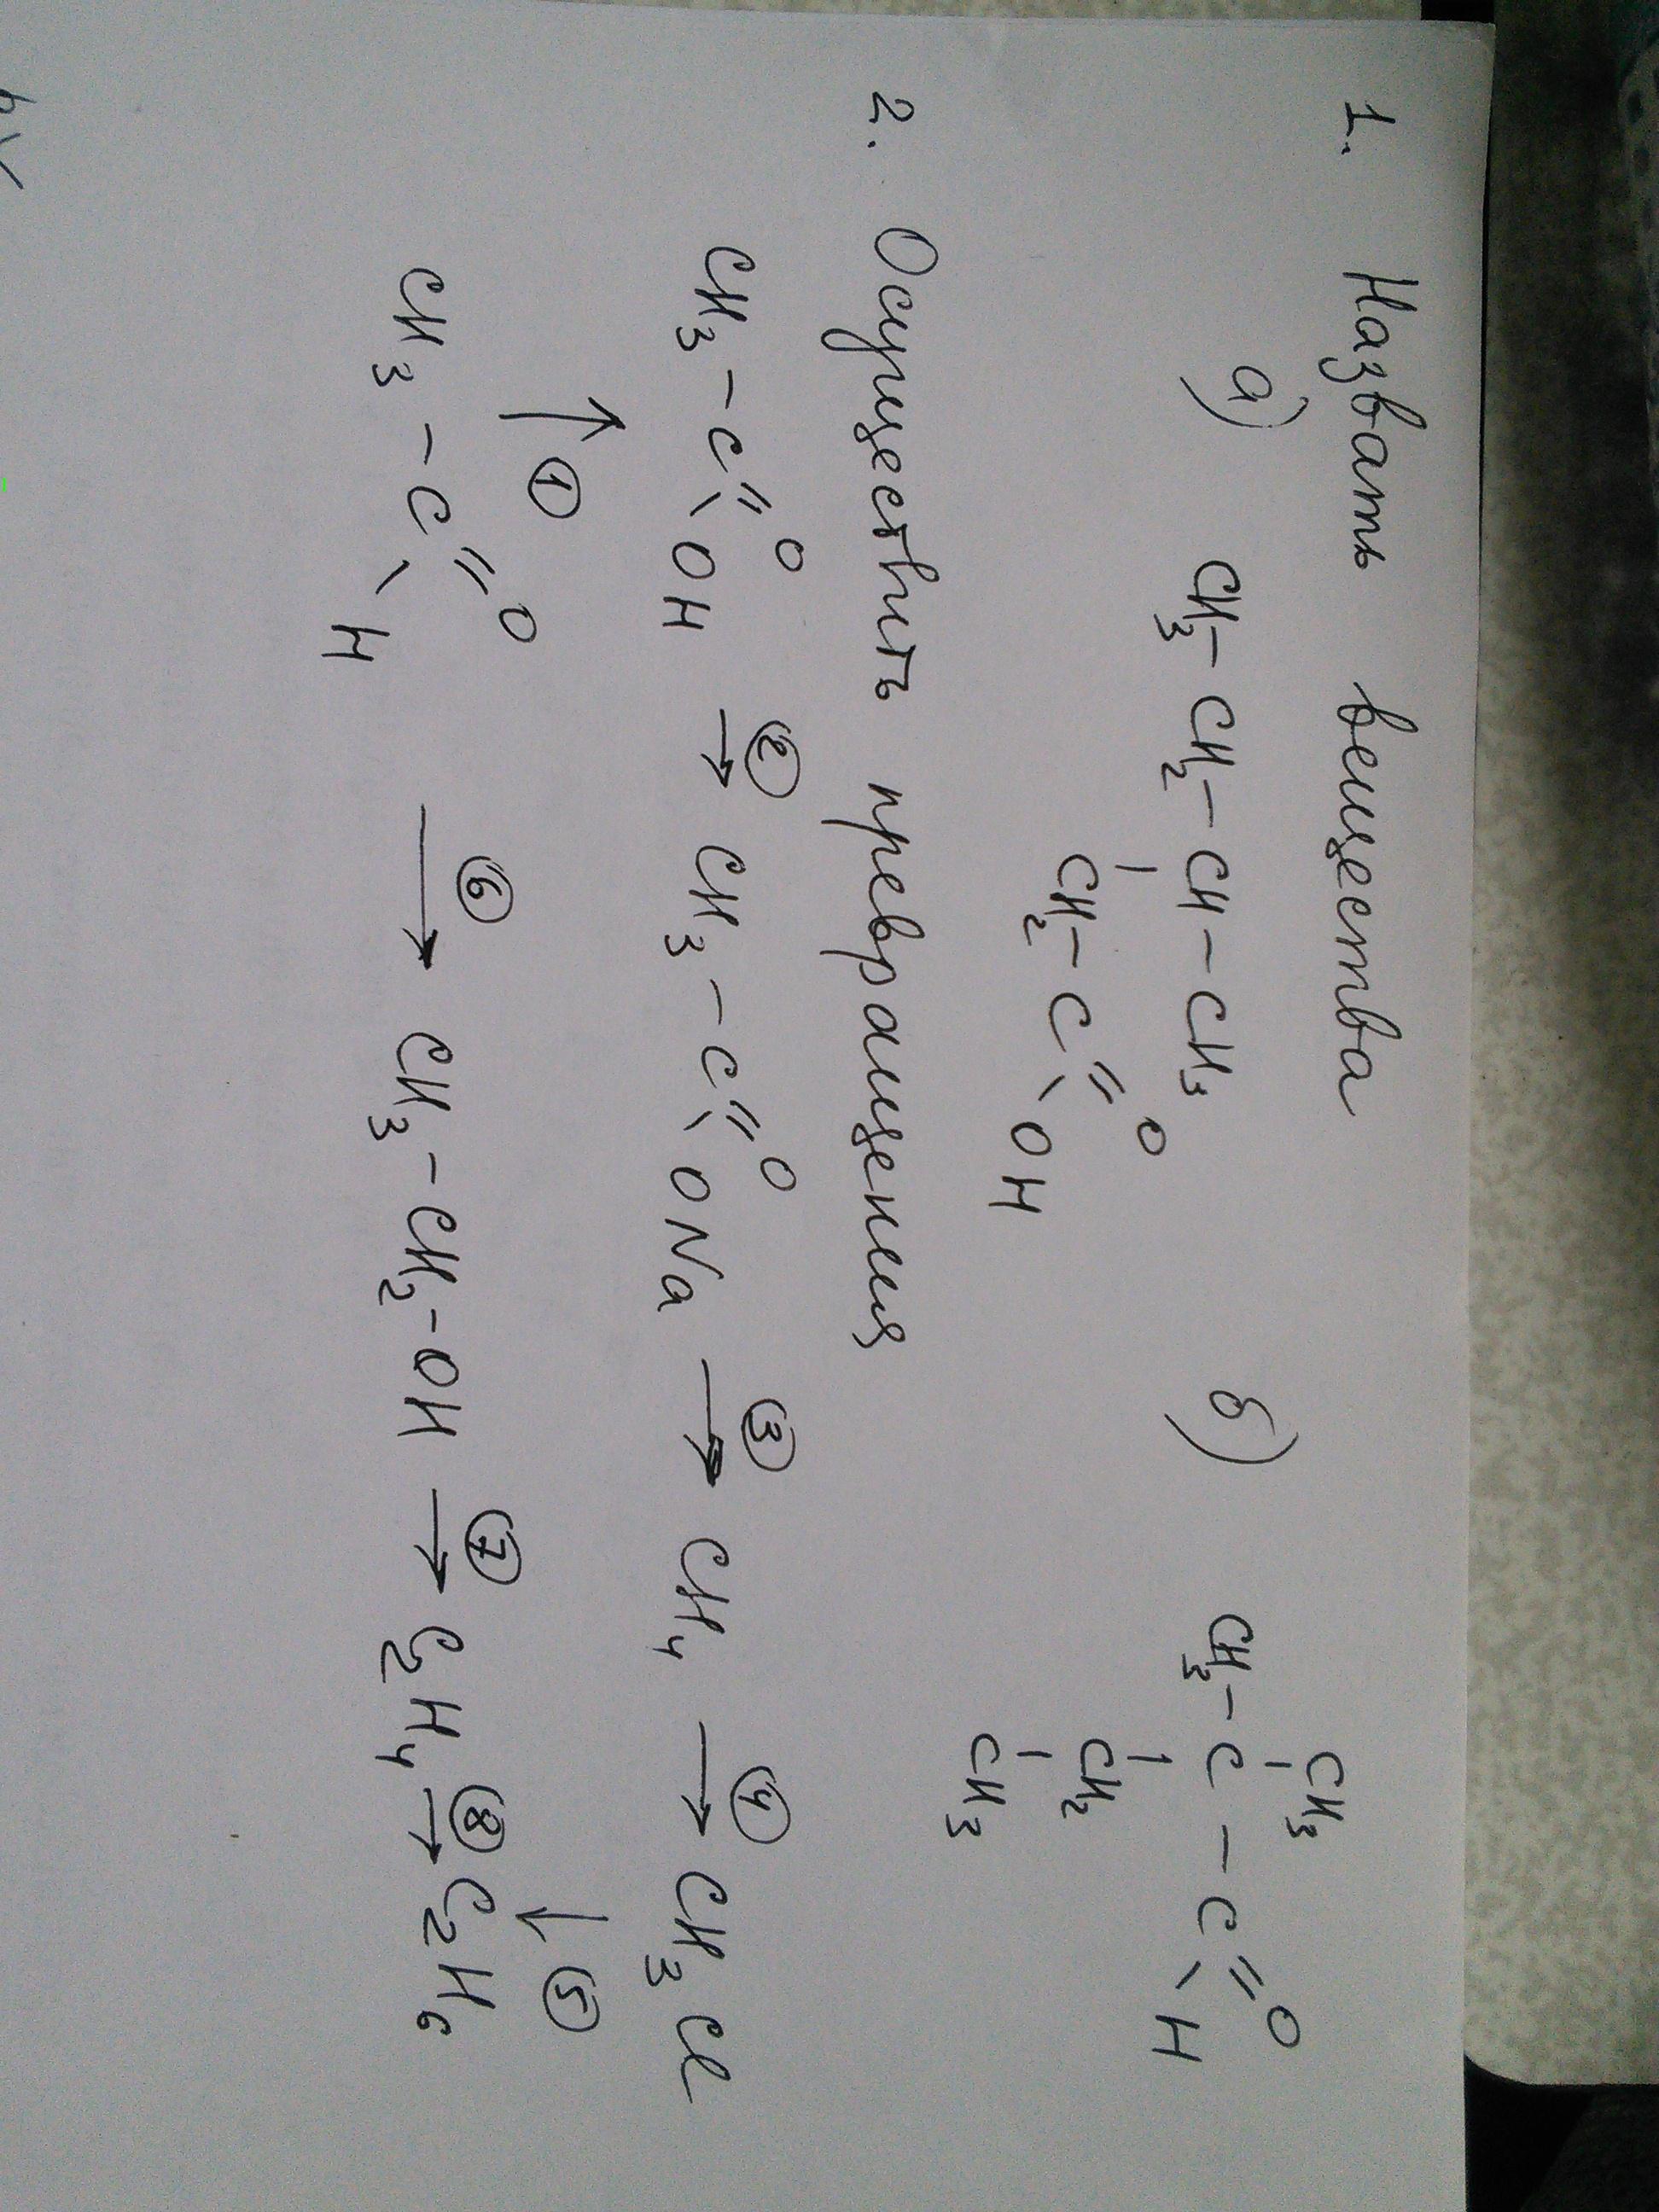 1. Назвать вещества
а) CH₃ – CH₂ – CH – CH₃ б) CH₃ – C – C =O \ H
| CH₂ – C =O \ OH
CH₃ |
| CH₂
| CH₃
2. Осуществить превращения
CH₃ – C =O \ OH →② CH₃ – C =O \ ONa →③ CH₄ →④ CH₃Cl
↑ ① ↓ ⑤
CH₃ – C =O \ H →⑥ CH₃ – CH₂ – OH →⑦ C₂H₄ →⑧ C₂H₆